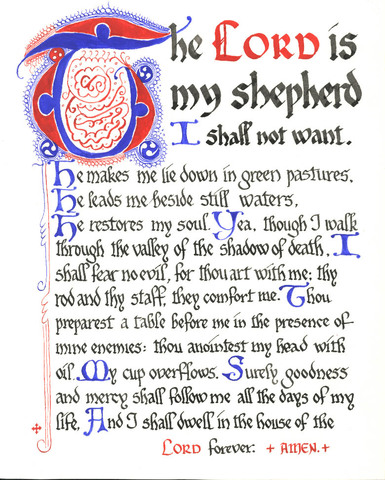 The LORD is
my shepherd
I shall not want.
He makes me lie down in green pastures.
He leads me beside still waters,
He restores my soul. Yea, though I walk
through the valley of the shadow of death, I
shall fear no evil, for thou art with me; thy
rod and thy staff, they comfort me. Thou
preparest a table before me in the presence of
mine enemies: thou anointest my head with
oil. My cup overflows. Surely goodness
and mercy shall follow me all the days of my
life, And I shall dwell in the house of the
LORD forever. + AMEN. +